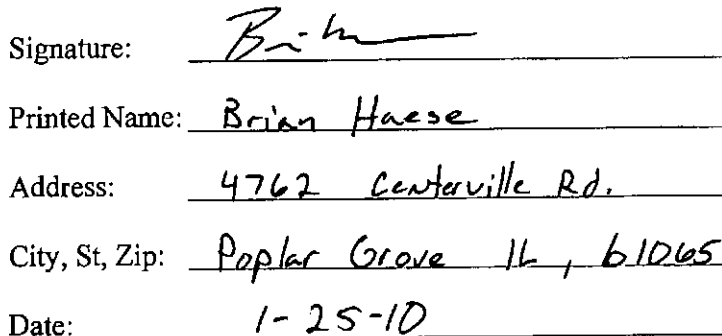 Signature:
Printed Name: Brian Haese
Address: 4762 Centerville Rd.
City, St, Zip: Poplar Grove IL, 61065
Date: 1-25-10